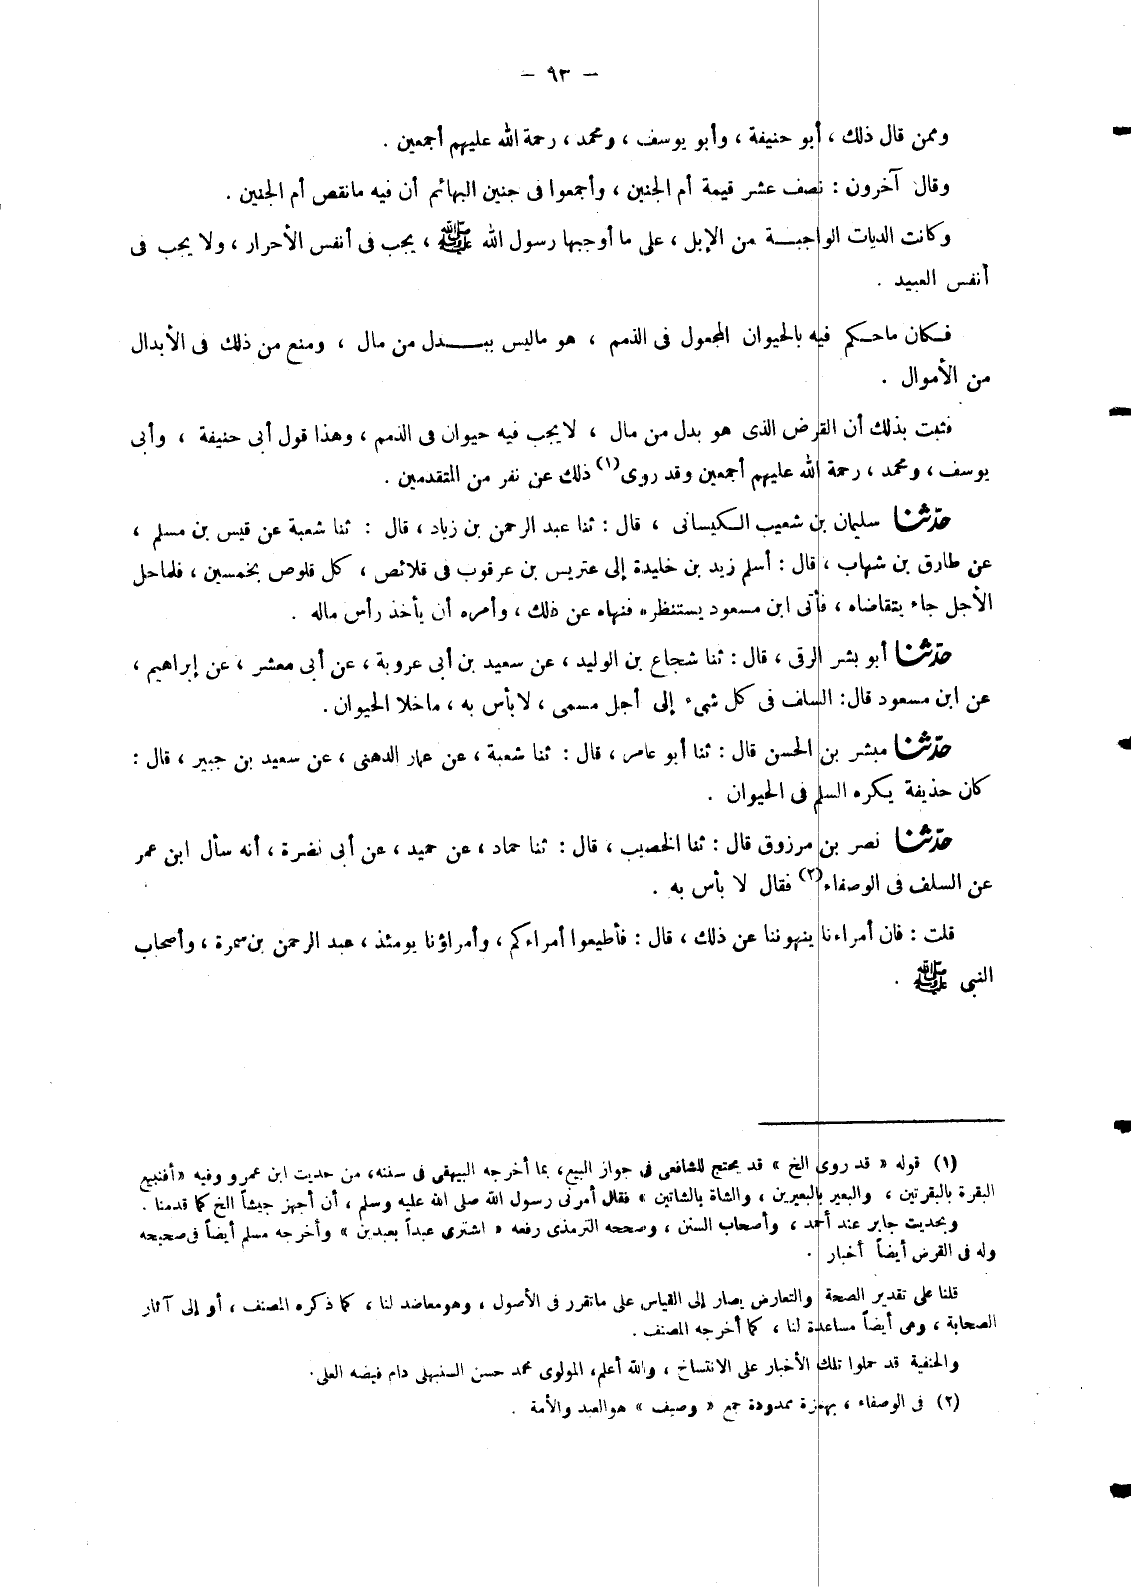 — ٩٣ —
وممن قال ذلك ، أبو حنيفة ، وأبو يوسف ، ومحمد ، رحمة الله عليهم أجمعين .
وقال آخرون : نصف عشر قيمة أم الجنين ، وأجمعوا فى جنين البهائم أن فيه مانقص أم الجنين .
وكانت الديات الواجبة من الإبل ، على ما أوجبها رسول الله ﷺ ، يجب فى أنفس الأحرار ، ولا يجب فى
أنفس العبيد .
فكان ماحكم فيه بالحيوان المجعول فى الذمم ، هو ماليس ببدل من مال ، ومنع من ذلك فى الأبدال
من الأموال .
فثبت بذلك أن القرض الذى هو بدل من مال ، لايجب فيه حيوان فى الذمم ، وهذا قول أبى حنيفة ، وأبى
يوسف ، ومحمد ، رحمة الله عليهم أجمعين وقد روى(١) ذلك عن نفر من المتقدمين .
حدّثنا سليمان بن شعيب الكيسانى ، قال : ثنا عبد الرحمن بن زياد ، قال : ثنا شعبة عن قيس بن مسلم ،
عن طارق بن شهاب ، قال : أسلم زيد بن خليدة إلى عتريس بن عرقوب فى قلائص ، كل قلوص بخمسين ، فلماحل
الأجل جاء يتقاضاه ، فأتى ابن مسعود يستنظره فنهاه عن ذلك ، وأمره أن يأخذ رأس ماله .
حدّثنا أبو بشر الرقى ، قال : ثنا شجاع بن الوليد ، عن سعيد بن أبى عروبة ، عن أبى معشر ، عن إبراهيم ،
عن ابن مسعود قال: السلف فى كل شىء إلى أجل مسمى ، لابأس به ، ماخلا الحيوان .
حدّثنا مبشر بن الحسن قال : ثنا أبو عامر ، قال : ثنا شعبة ، عن عمار الدهنى ، عن سعيد بن جبير ، قال :
كان حذيفة يكره السلم فى الحيوان .
حدّثنا نصر بن مرزوق قال : ثنا الخصيب ، قال : ثنا حماد ، عن حميد ، عن أبى نضرة ، أنه سأل ابن عمر
عن السلف فى الوصفاء(٢) فقال لا بأس به .
قلت : فان أمراءنا ينهوننا عن ذلك ، قال : فأطيعوا أمراءكم ، وأمراؤنا يومئذ ، عبد الرحمن بن سمرة ، وأصحاب
النبى ﷺ .
(١) قوله « قد روى الخ » قد يحتج للشافعى فى جواز البيع، بما أخرجه البيهقى فى سننه، من حديث ابن عمرو وفيه «أفنبيع
البقرة بالبقرتين ، والبعير بالبعيرين ، والشاة بالشاتين » فقال أمرنى رسول الله صلى الله عليه وسلم ، أن أجهز جيشاً الخ كما قدمنا .
وبحديث جابر عند أحمد ، وأصحاب السنن ، وصححه الترمذى رفعه « اشترى عبداً بعبدين » وأخرجه مسلم أيضاً فى صحيحه
وله فى القرض أيضاً أخبار .
قلنا على تقدير الصحة والتعارض يصار إلى القياس على ماتقرر فى الأصول ، وهو معاضد لنا ، كما ذكره المصنف ، أو إلى آثار
الصحابة ، وهى أيضاً مساعدة لنا ، كما أخرجه المصنف .
والحنفية قد حملوا تلك الأخبار على الانتساخ ، والله أعلم، المولوى محمد حسن السنبهلى دام فيضه العلى.
(٢) فى الوصفاء ، بهمزة ممدودة جمع « وصيف » هوالعبد والأمة .